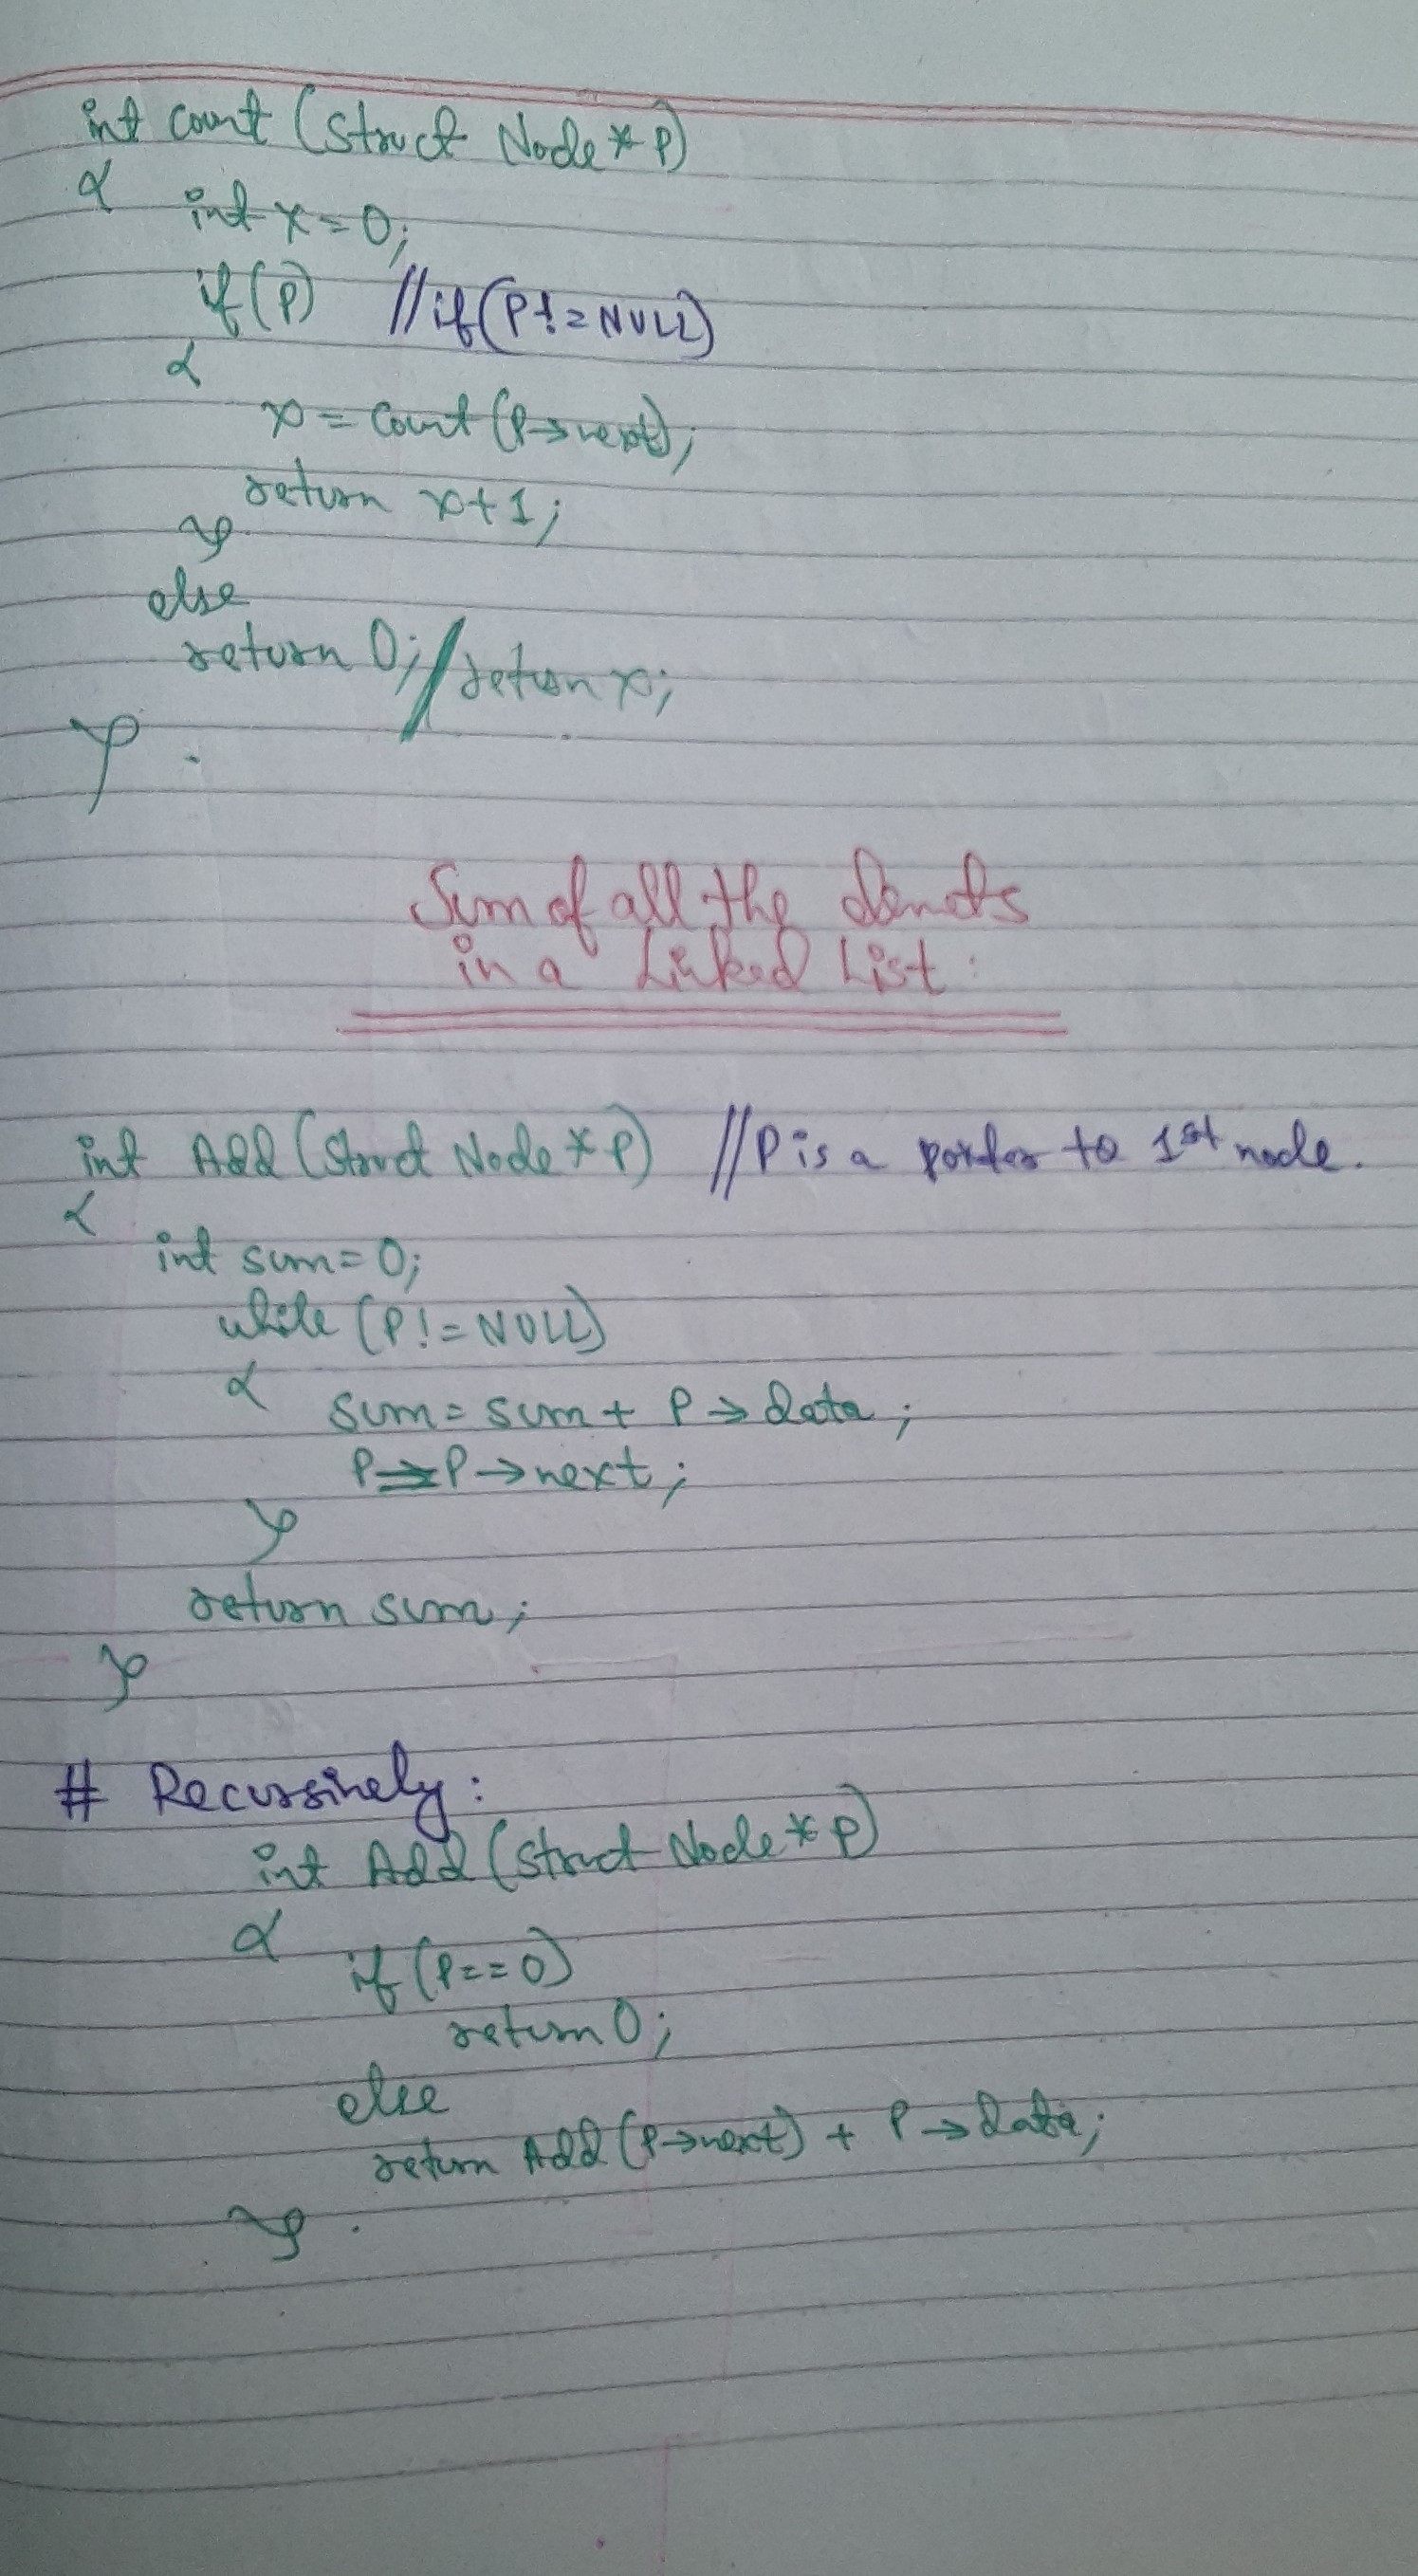 int count (struct Node * P)
{
int x = 0;
if (P) //if (P != NULL)
{
x = count (P→next);
return x+1;
}
else
return 0; / return x;
}
Sum of all the elements
in a Linked List:
int Add (struct Node * P) //P is a pointer to 1st node.
{
int sum = 0;
while (P != NULL)
{
sum = sum + P → data;
P = P → next;
}
return sum;
}
# Recursively:
int Add (struct Node * P)
{
if (P == 0)
return 0;
else
return Add (P→next) + P → data;
}